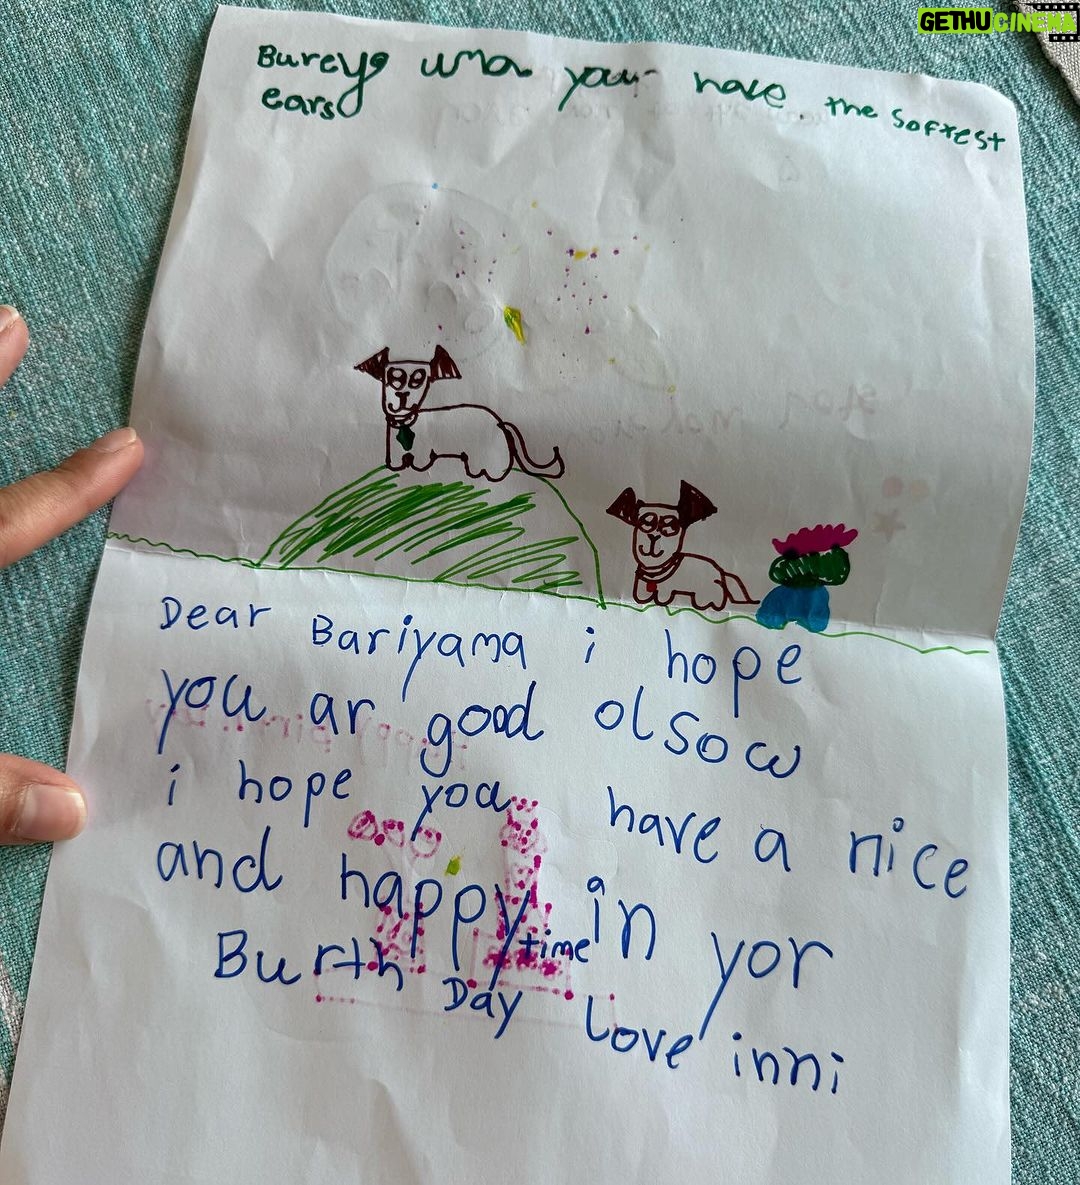 GETHU CINEMA
Bureyo uma your have the softest
ears
Dear Bariyama i hope
you ar good olsow
i hope you have a nice
and happy time in yor
Burth Day Love inni